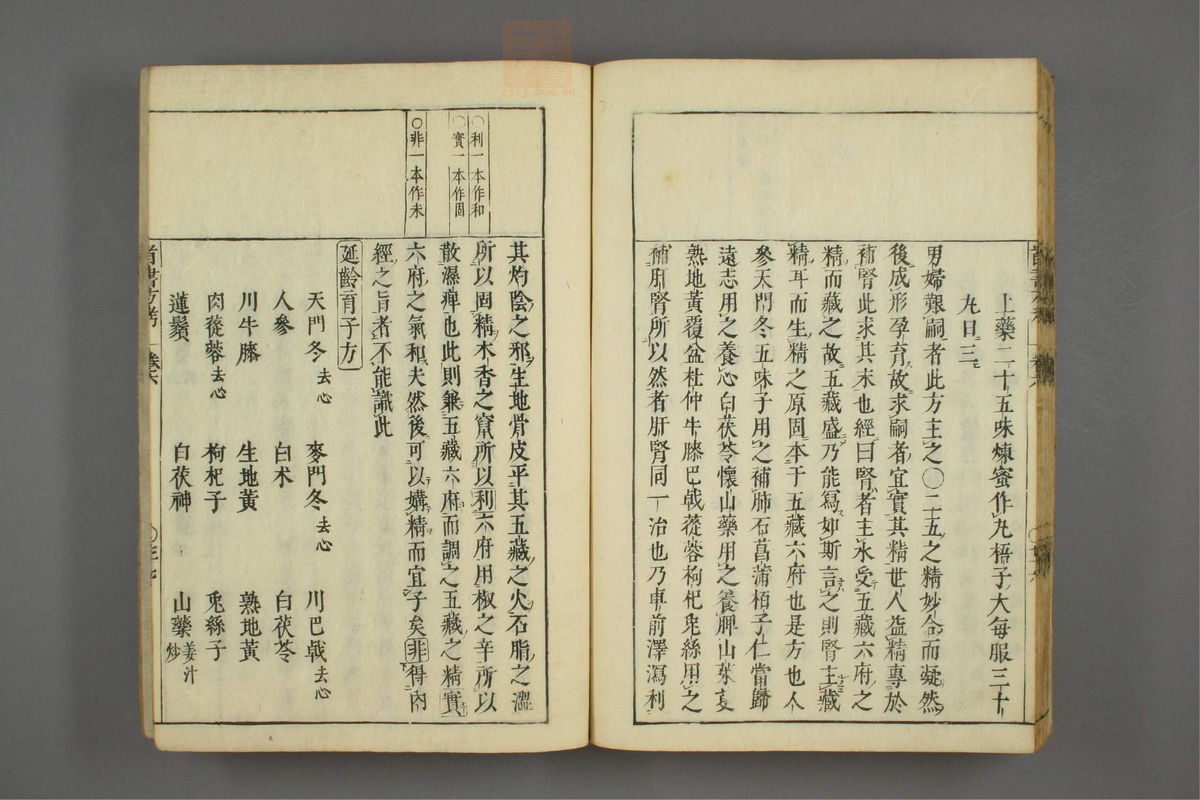 上藥二十五味煉蜜作丸梧子大每服三十
丸日三
男婦艱嗣者此方主之〇二五之精妙合而凝然
後成形孕育故求嗣者宜實其精世人盗精專於
補腎此求其末也經曰腎者主水受五藏六府之
精而藏之故五藏盛乃能寫如斯言之則腎主藏
精耳而生精之原固本于五藏六府也是方也人
參天門冬五味子用之補肺石菖蒲栢子仁當歸
遠志用之養心白茯苓懷山藥用之養脾山茱萸
熟地黃覆盆杜仲牛膝巴戟蓯蓉枸杞兔絲用之
補肝腎所以然者肝腎同一治也乃車前澤瀉利
〇利一本作和
〇實一本作固
〇非一本作未
其灼陰之邪生地骨皮平其五藏之火石脂之澀
所以固精木香之竄所以利六府用椒之辛所以
散濕痺也此則兼五藏六府而調之五藏之精實
六府之氣和夫然後可以媾精而宜子矣非得內
經之旨者不能識此
延齡育子方
天門冬去心 麥門冬去心 川巴戟去心
人參 白朮 白茯苓
川牛膝 生地黃 熟地黃
肉蓯蓉去心 枸杞子 兔絲子
蓮鬚 白茯神 山藥姜汁炒
卷六
zysj.com.cn